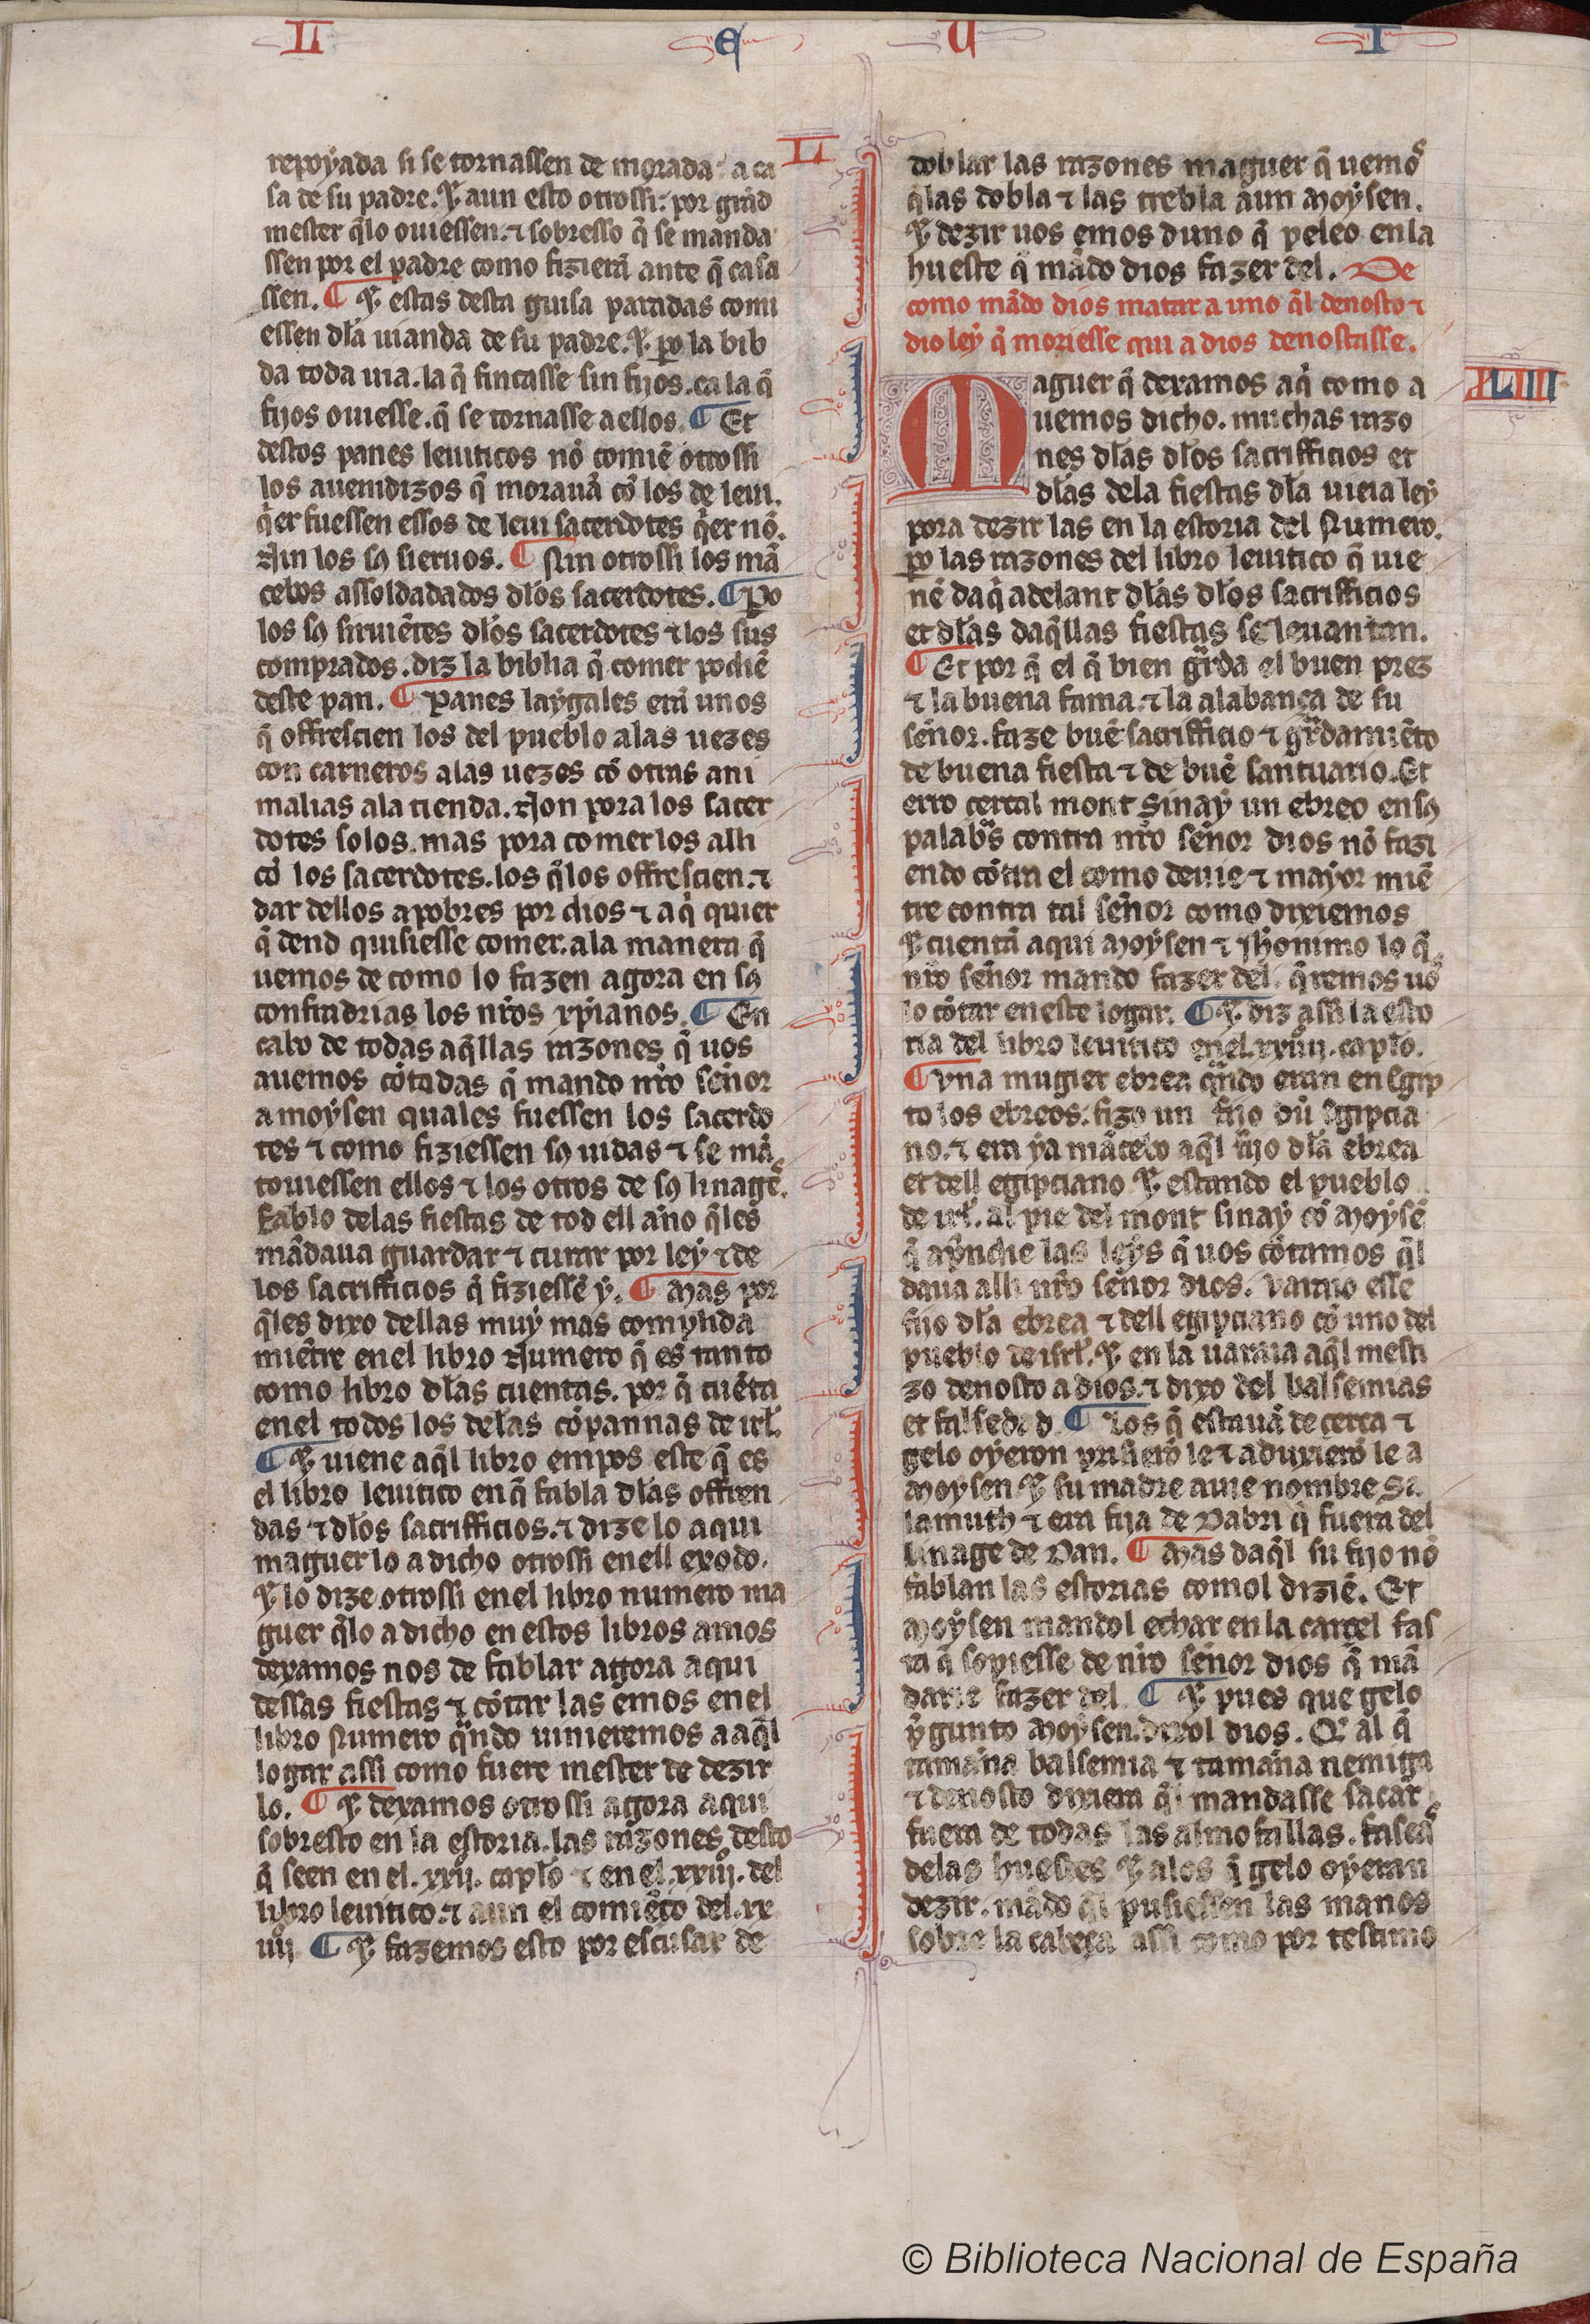 LI E U I
repoyada si se tornassen de morada. a ca
LI
sa de su padre. ⁊ aun esto otrossi. por grãd
mester q̃lo ouiessen. ⁊ sobresso q̃ se manda
ssen por el padre como fizierã ante q̃ casa
ssen. ¶ ⁊ estas desta guisa paradas comi
essen dl̃a uianda de su padre. ⁊ ꝑo la bib
da toda uia. la q̃ fincasse sin fijos. ca la q̃
fijos ouiesse. q̃ se tornasse a ellos. ¶ Et
destos panes leuiticos nõ comiẽ otrossi
los auenidizos q̃ morauã cõ los de leui.
q̃er fuessen essos de leui sacerdotes q̃er nõ.
Nin los sꝯ sieruos. ¶ Nin otrossi los mã
cebos assoldadados dl̃os sacerdotes. ¶ Po
los sꝯ siruiẽtes dl̃os sacerdotes ⁊ los sus
comprados. diz la biblia q̃ comer podiẽ
deste pan. ¶ Panes laygales erã unos
q̃ offrescien los del pueblo alas uezes
con carneros alas uezes cõ otras ani
malias ala tienda. Non pora los sacer
dotes solos. mas pora comer los alli
cõ los sacerdotes. los q̃los offrescien. ⁊
dar dellos a pobres por dios ⁊ a q̃ quier
q̃ dend quisiesse comer. ala manera q̃
uemos de como lo fazen agora en sꝯ
confradrias los nr̃os xp̃ianos. ¶ En
cabo de todas aq̃llas razones q̃ uos
auemos cõtadas q̃ mando nr̃o sennor
a moysen quales fuessen los sacerdo
tes ⁊ como fiziessen sꝯ uidas ⁊ se mã
touiessen ellos ⁊ los otros de sꝯ linages.
fablo delas fiestas de tod ell anno q̃les
mãdaua guardar ⁊ curar por ley ⁊ de
los sacrifficios q̃ fiziessẽ y. ¶ Mas por
q̃les dixo dellas muy mas complida
miẽtre enel libro Numero q̃ es tanto
como libro dl̃as cuentas. por q̃ cuẽta
enel todos los delas cõpannas de irl̃.
¶ ⁊ uiene aq̃l libro empos este q̃ es
el libro leuitico en q̃ fabla dl̃as offren
das ⁊ dl̃os sacrifficios. ⁊ dize lo aqui
maguer lo a dicho otrossi enell exodo.
⁊ lo dize otrossi enel libro numero ma
guer q̃lo a dicho en estos libros amos
dexamos nos de fablar agora aqui
dessas fiestas ⁊ cõtar las emos enel
libro Numero q̃ndo uinieremos a aq̃l
logar assi como fuere mester de dezir
lo. ¶ ⁊ dexamos otrossi agora aqui
sobresto en la estoria. las razones desto
q̃ seen en el. xxij. capl̃o ⁊ en el. xxiij. del
libro leuitico. ⁊ aun el comiẽço del. xx
iiij ¶ ⁊ fazemos esto por escusar de
doblar las razones maguer q̃ uemos
q̃las dobla ⁊ las trebla aun Moysen.
⁊ dezir uos emos duno q̃ peleo en la
hueste q̃ mãdo dios fazer del. De
como mãdo dios matar a uno q̃l denosto ⁊
dio ley q̃ moriesse qui a dios denostasse.
XLIIII
Maguer q̃ dexamos aq̃ como a
uemos dicho. muchas razo
nes dl̃as dl̃os sacrifficios et
dl̃as dela fiestas dl̃a uieia ley
pora dezir las en la estoria del Numero.
ꝑo las razones del libro leuitico q̃ uie
nẽ daq̃ adelant dl̃as dl̃os sacrifficios
et dl̃as daq̃llas fiestas se leuantan.
¶ Et por q̃ el q̃ bien grda el buen prez
⁊ la buena fama. ⁊ la alabança de su
sennor. faze buẽ sacrifficio ⁊ grdamiẽto
de buena fiesta ⁊ de buẽ santuario. Et
erro cercal mont Sinay un ebreo en sꝯ
palabras contra nr̃o sennor dios nõ fazi
endo cõtra el como deuie ⁊ mayor miẽ
tre contra tal sennor como dixiemos
⁊ cuentã aqui Moysen ⁊ Jheronimo lo q̃
nr̃o sennor mando fazer del. q̃remos uos
lo cõtar en este logar. ¶ ⁊ diz assi la esto
ria del libro leuitico enel. xxiiij. capl̃o.
¶ Una mugier ebrea q̃ndo eran en Egip
to los ebreos. fizo un fijo dũ Egipcia
no. ⁊ era ya mãcebo aq̃l fijo dl̃a ebrea
et dell egipciano ⁊ estando el pueblo
de irl̃. al pie del mont sinay cõ Moysẽ
q̃ aprindie las leys q̃ uos cõtamos q̃l
daua alli nr̃o sennor dios. uaraio esse
fijo dl̃a ebrea ⁊ dell egipciano cõ uno del
pueblo de isrl̃. ⁊ en la uaraia aq̃l mesti
zo denosto a dios. ⁊ dixo del balsemias
et falsedad. ¶ Los q̃ estauã de cerca ⁊
gelo oyeron prisierõ le ⁊ aduxierõ le a
Moysen ⁊ su madre auie nombre Sa
lamuth ⁊ era fija de Dabri q̃ fuera del
linage de Dan. ¶ Mas daq̃l su fijo nõ
fablan las estorias comol dizien. Et
Moysen mandol echar en la carcel fas
ta q̃ sopiesse de nr̃o sennor dios q̃ mã
darie fazer del ¶ ⁊ pues que gelo
p̃gunto Moysen. dixol dios. Q̃ al q̃
tamanna balsemia ⁊ tamanna nemiga
⁊ denosto dixiera q̃l mandasse sacar
fuera de todas las almofallas. fascas
delas huestes ⁊ alos q̃ gelo oyeran
dezir. mãdo q̃l pusiessen las manos
sobre la cabeça assi como por testimo
© Biblioteca Nacional de España